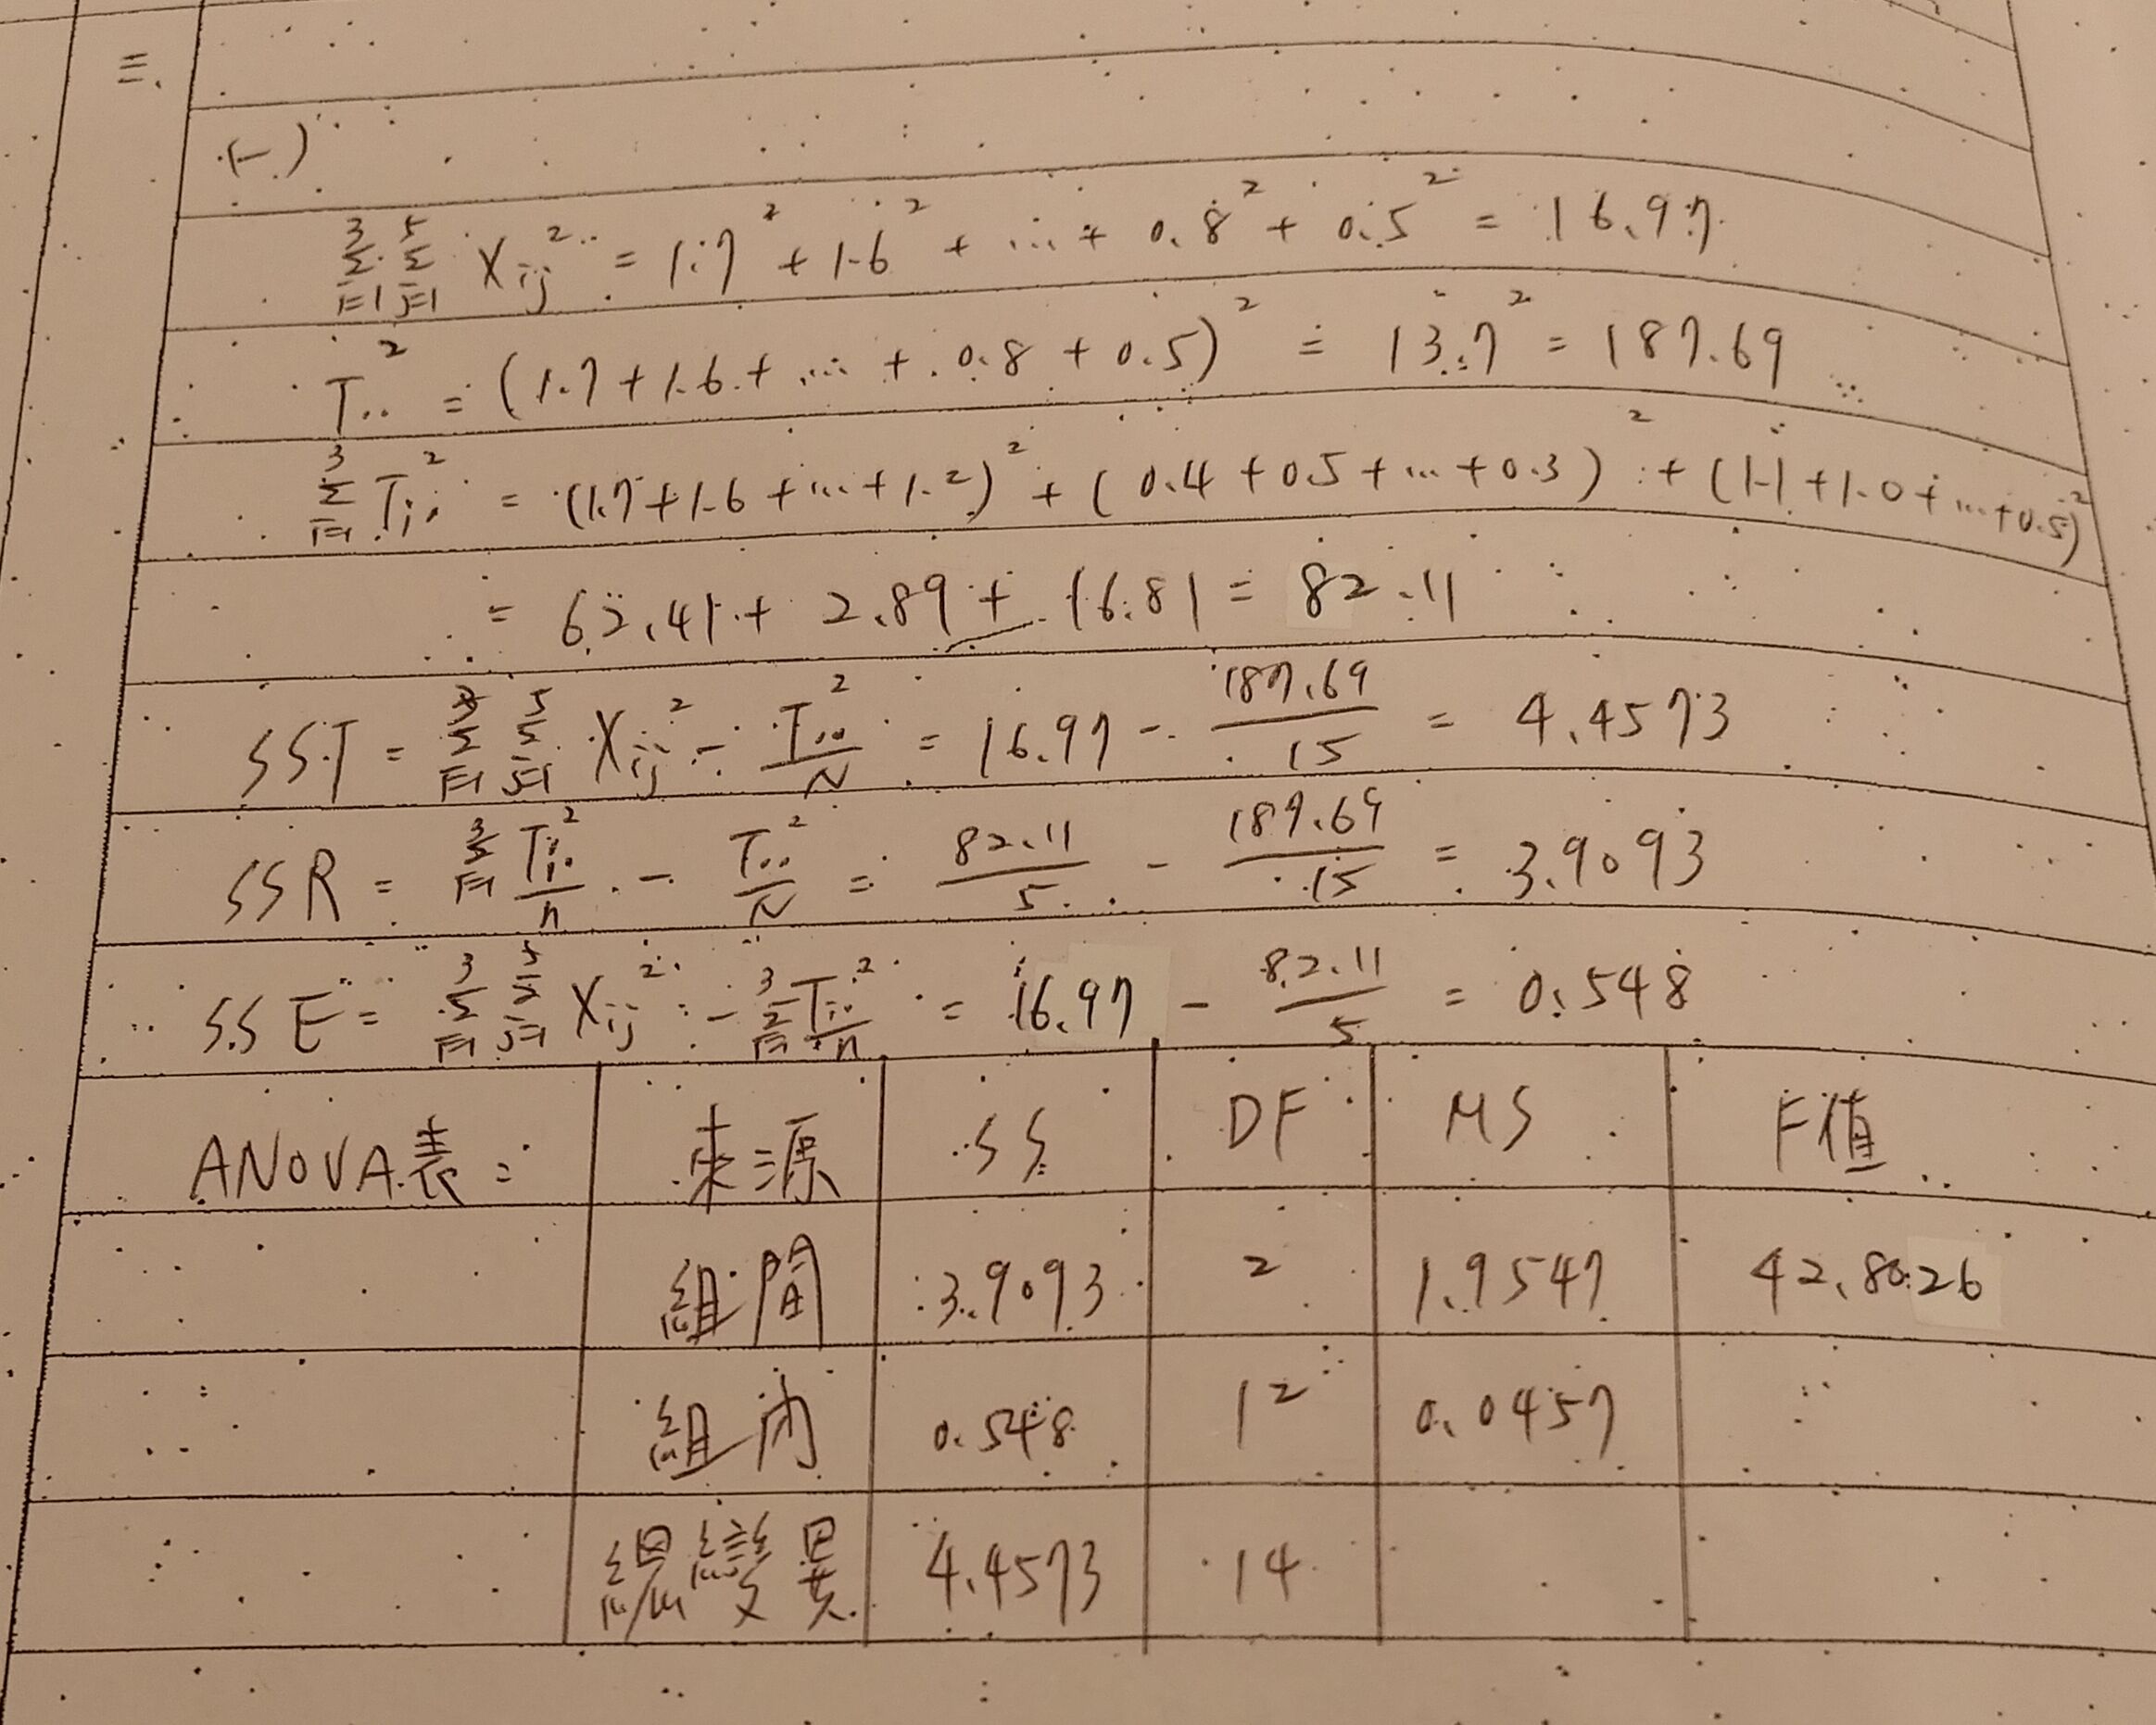 三、
(一)
3 5
Σ Σ Xij² = 1.7² + 1.6² + … + 0.8² + 0.5² = 16.97
i=1 j=1
T..² = (1.7 + 1.6 + … + 0.8 + 0.5)² = 13.7² = 187.69
3
Σ Ti.² = (1.7 + 1.6 + … + 1.2)² + (0.4 + 0.5 + … + 0.3)² + (1.1 + 1.0 + … + 0.5)²
i=1
= 62.41 + 2.89 + 16.81 = 82.11
3 5
SST = Σ Σ Xij² - T..²/N = 16.97 - 187.69/15 = 4.4573
i=1 j=1
3
SSR = Σ Ti.²/n - T..²/N = 82.11/5 - 187.69/15 = 3.9093
i=1
3 5 3
SSE = Σ Σ Xij² - Σ Ti.²/n = 16.97 - 82.11/5 = 0.548
i=1 j=1 i=1
ANOVA表: 來源 SS DF MS F值
組間 3.9093 2 1.9547 42.8026
組內 0.548 12 0.0457
總變異 4.4573 14